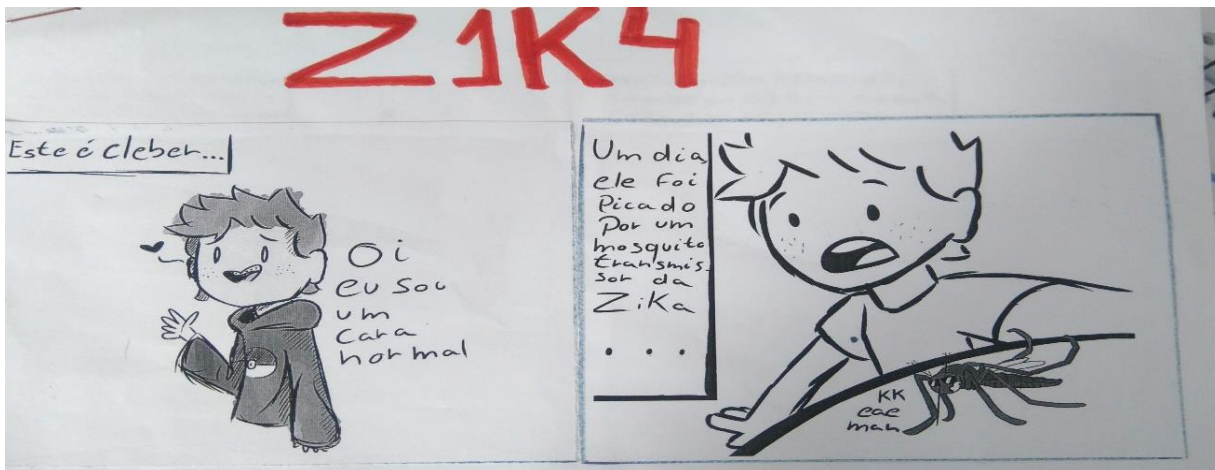 Z1K4
Este é Cleber...
Oi
eu sou
um
cara
normal
Um dia,
ele foi
Picado
Por um
mosquito
transmis-
sor da
Zika
...
KK
eae
man